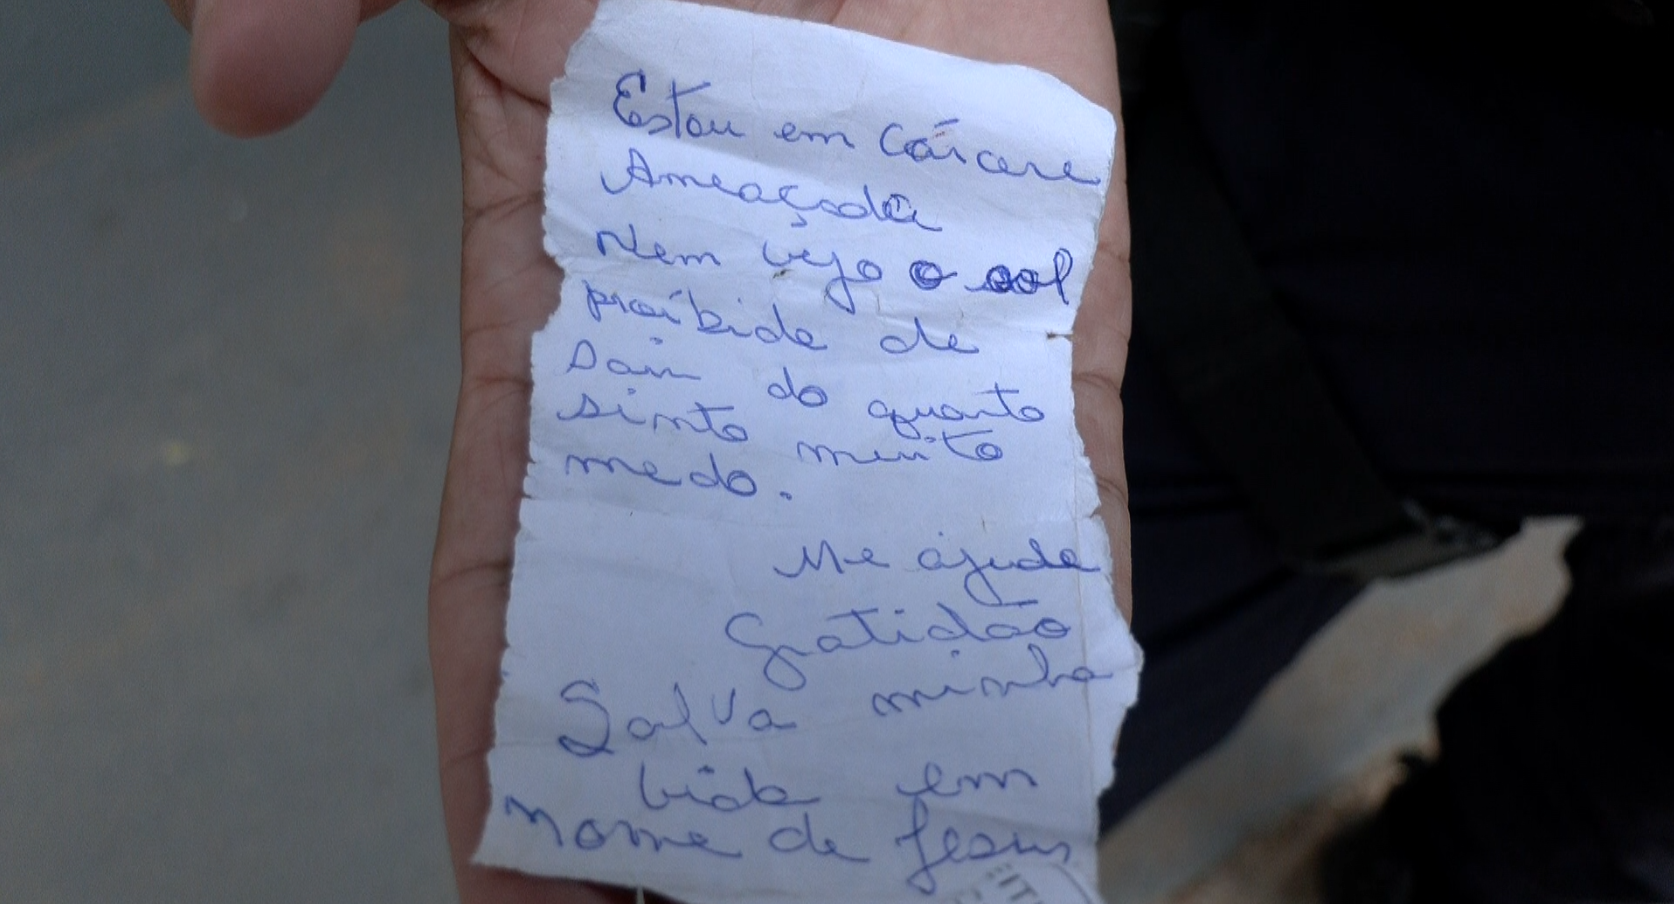 Estou em Cárcere
Ameaçada
Nem vejo o sol
proíbida de
Sair do quarto
sinto muito
medo.
Me ajuda
Gratidão
Salva minha
vida em
nome de Jesus